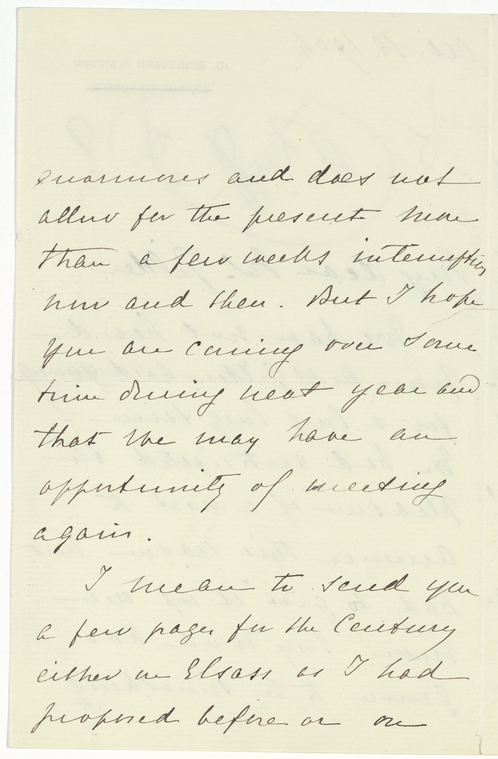 enormous and does not
allow for the present more
than a few weeks interruption
now and then. But I hope
you are coming over some
time during next year and
that we may have an
opportunity of meeting
again.
I mean to send you
a few pages for the Century
either on Elsass as I had
proposed before or on